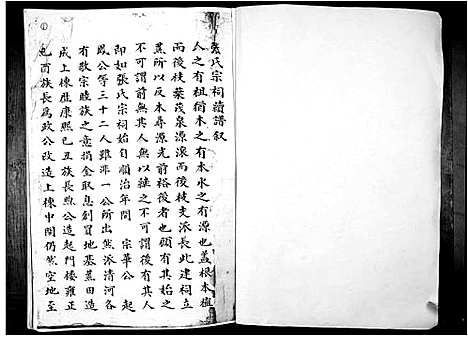 張氏宗祠續譜叙
人之有祖猶木之有本水之有源也蓋根本植
而後枝葉茂泉源濬而後枝支派長此建祠立
蕉所以反本尋源光前裕後者也顧有其始之
不可謂前無其人無以繼之不可謂後有其人
即如張氏宗祠始自順治年間 宗華公 起
威公等三十二人雖非一公所出然派清河各
有敬宗睦族之意捐金取息創買地基蕉田造
成上棟歷康熙己丑族長熙公造起門樓雍正
己酉族長為政公改造上棟中間仍然空地至